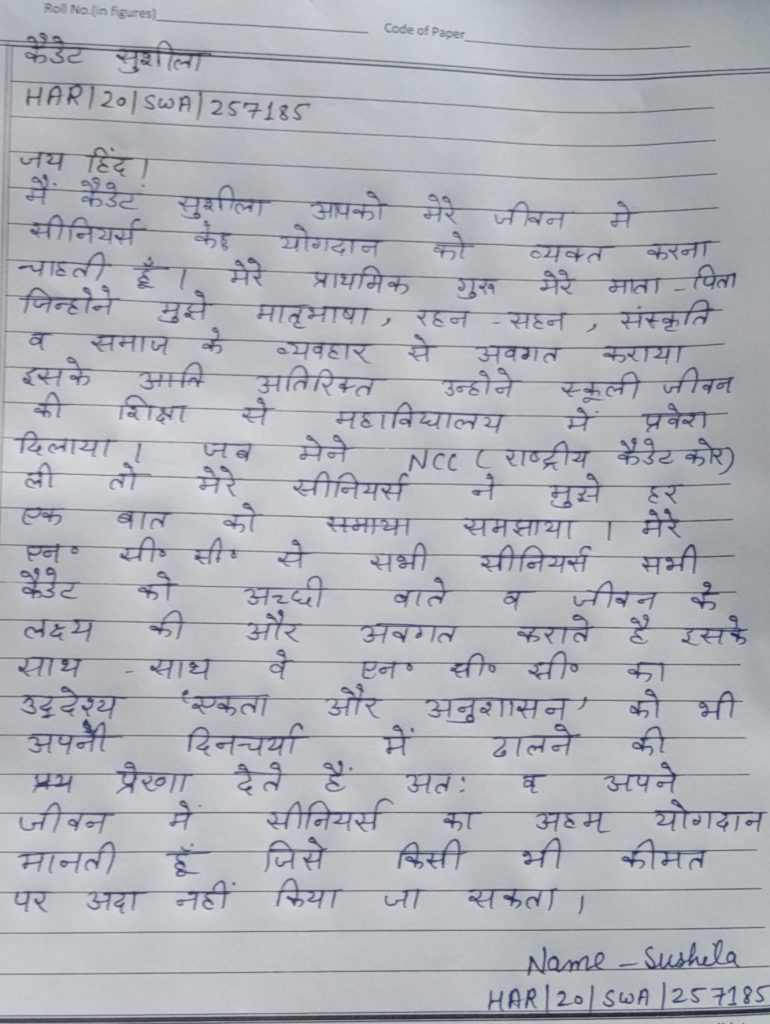 Roll No.(in figures)
Code of Paper
कैडेट सुशीला
HAR/20/SWA/257185
जय हिंद।
मैं कैडेट सुशीला आपको मेरे जीवन में
सीनियर्स के योगदान को व्यक्त करना
चाहती हूँ। मेरे प्राथमिक गुरु मेरे माता-पिता
जिन्होने मुझे मातृभाषा, रहन-सहन, संस्कृति
व समाज के व्यवहार से अवगत कराया
इसके अतिरिक्त उन्होने स्कूली जीवन
की शिक्षा से महाविद्यालय में प्रवेश
दिलाया। जब मेने NCC (राष्ट्रीय कैडेट कोर)
ली तो मेरे सीनियर्स ने मुझे हर
एक बात को समझाया। मेरे
एन॰ सी॰ सी॰ से सभी सीनियर्स सभी
कैडेट को अच्छी बाते व जीवन के
लक्ष्य की और अवगत कराते है इसके
साथ-साथ वे एन॰ सी॰ सी॰ का
उद्देश्य 'एकता और अनुशासन' को भी
अपनी दिनचर्या में ढालने की
प्रेरणा देते हैं अत: व अपने
जीवन में सीनियर्स का अहम योगदान
मानती हूँ जिसे किसी भी कीमत
पर अदा नहीं किया जा सकता।
Name - Sushela
HAR/20/SWA/257185